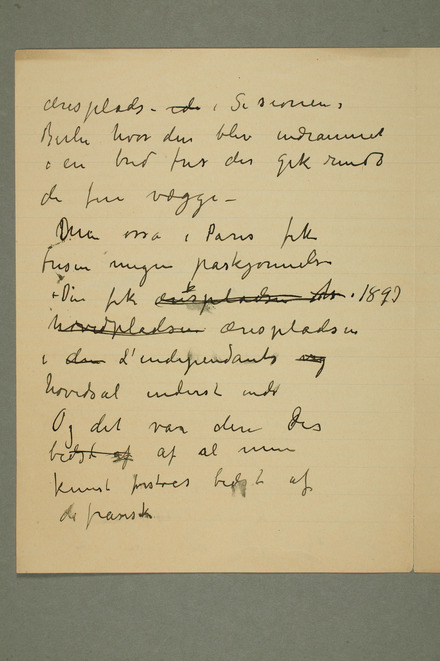 æresplads – i Sesionen,
Berlin hvor den blev indrammet
i en bred fris der gik rundt
de fire vægge –
Men osså i Paris fik
frisen megen påskjønnelse
– Den fik ærespladsen 1897
hovedpladsen ærespladsen
i den d'independants og
hovedsal inderst inde
Og det var denne des
bedst af af al min
kunst forstaes bedst af
de fransk